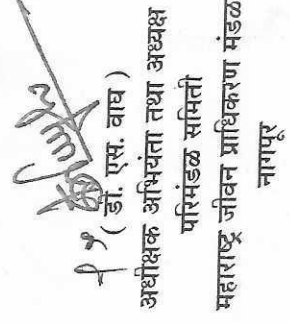 ( डी. एस. वाघ )
अधीक्षक अभियंता तथा अध्यक्ष
परिमंडळ समिती
महाराष्ट्र जीवन प्राधिकरण मंडळ
नागपूर